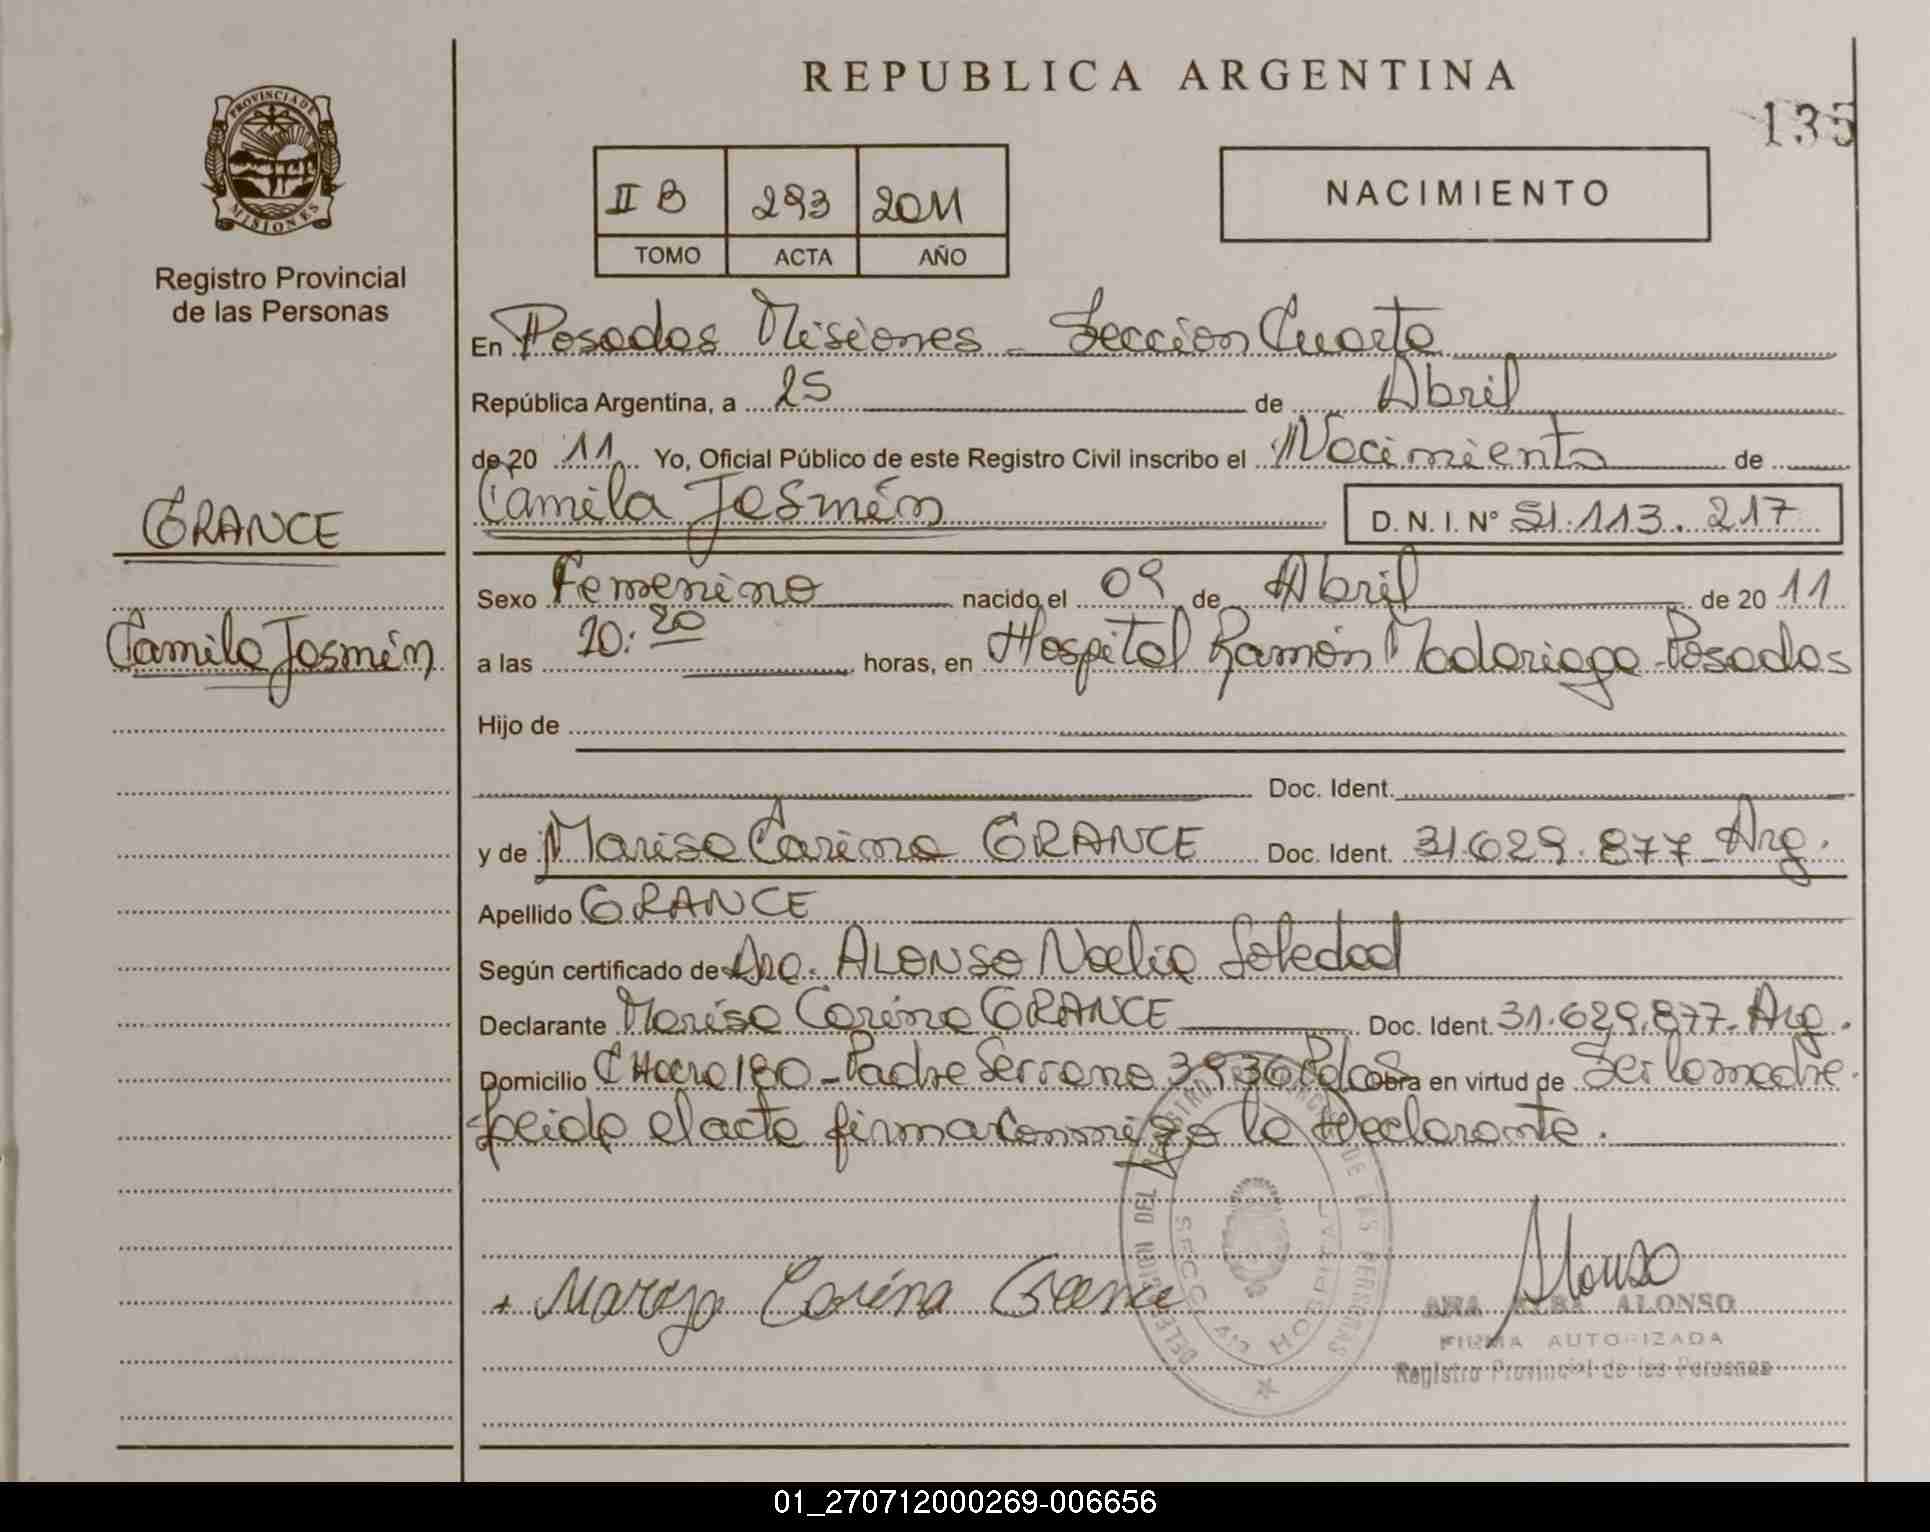 REPUBLICA ARGENTINA
135
PROVINCIA DE MISIONES
Registro Provincial
de las Personas
II B 293 2011
TOMO ACTA AÑO
NACIMIENTO
En Posadas Misiones - Sección Cuarta
República Argentina, a 25 de Abril
de 20 11 Yo, Oficial Público de este Registro Civil inscribo el Nacimiento de
Camila Jasmín D. N. I. N° 51.113.217
GRANCE
Camila Jasmín
Sexo Femenino nacido el 09 de Abril de 20 11
a las 20:20 horas, en Hospital Ramón Madariaga - Posadas
Hijo de
Doc. Ident.
y de Marisa Carina GRANCE Doc. Ident. 31.629.877 - Arg.
Apellido GRANCE
Según certificado de Dra. ALONSO Noelia Soledad
Declarante Marisa Carina GRANCE Doc. Ident. 31.629.877 - Arg.
Domicilio CHacra 180 - Padre Serrano 3936 Pdas Obra en virtud de Ser la madre.
Leída el acta firma conmigo la Declarante.
DELEGACION DEL REGISTRO DE LAS PERSONAS
HOSPITAL
Carina Grance
Alonso
ANA ALBA ALONSO
FIRMA AUTORIZADA
Registro Provincial de las Personas
01_270712000269-006656